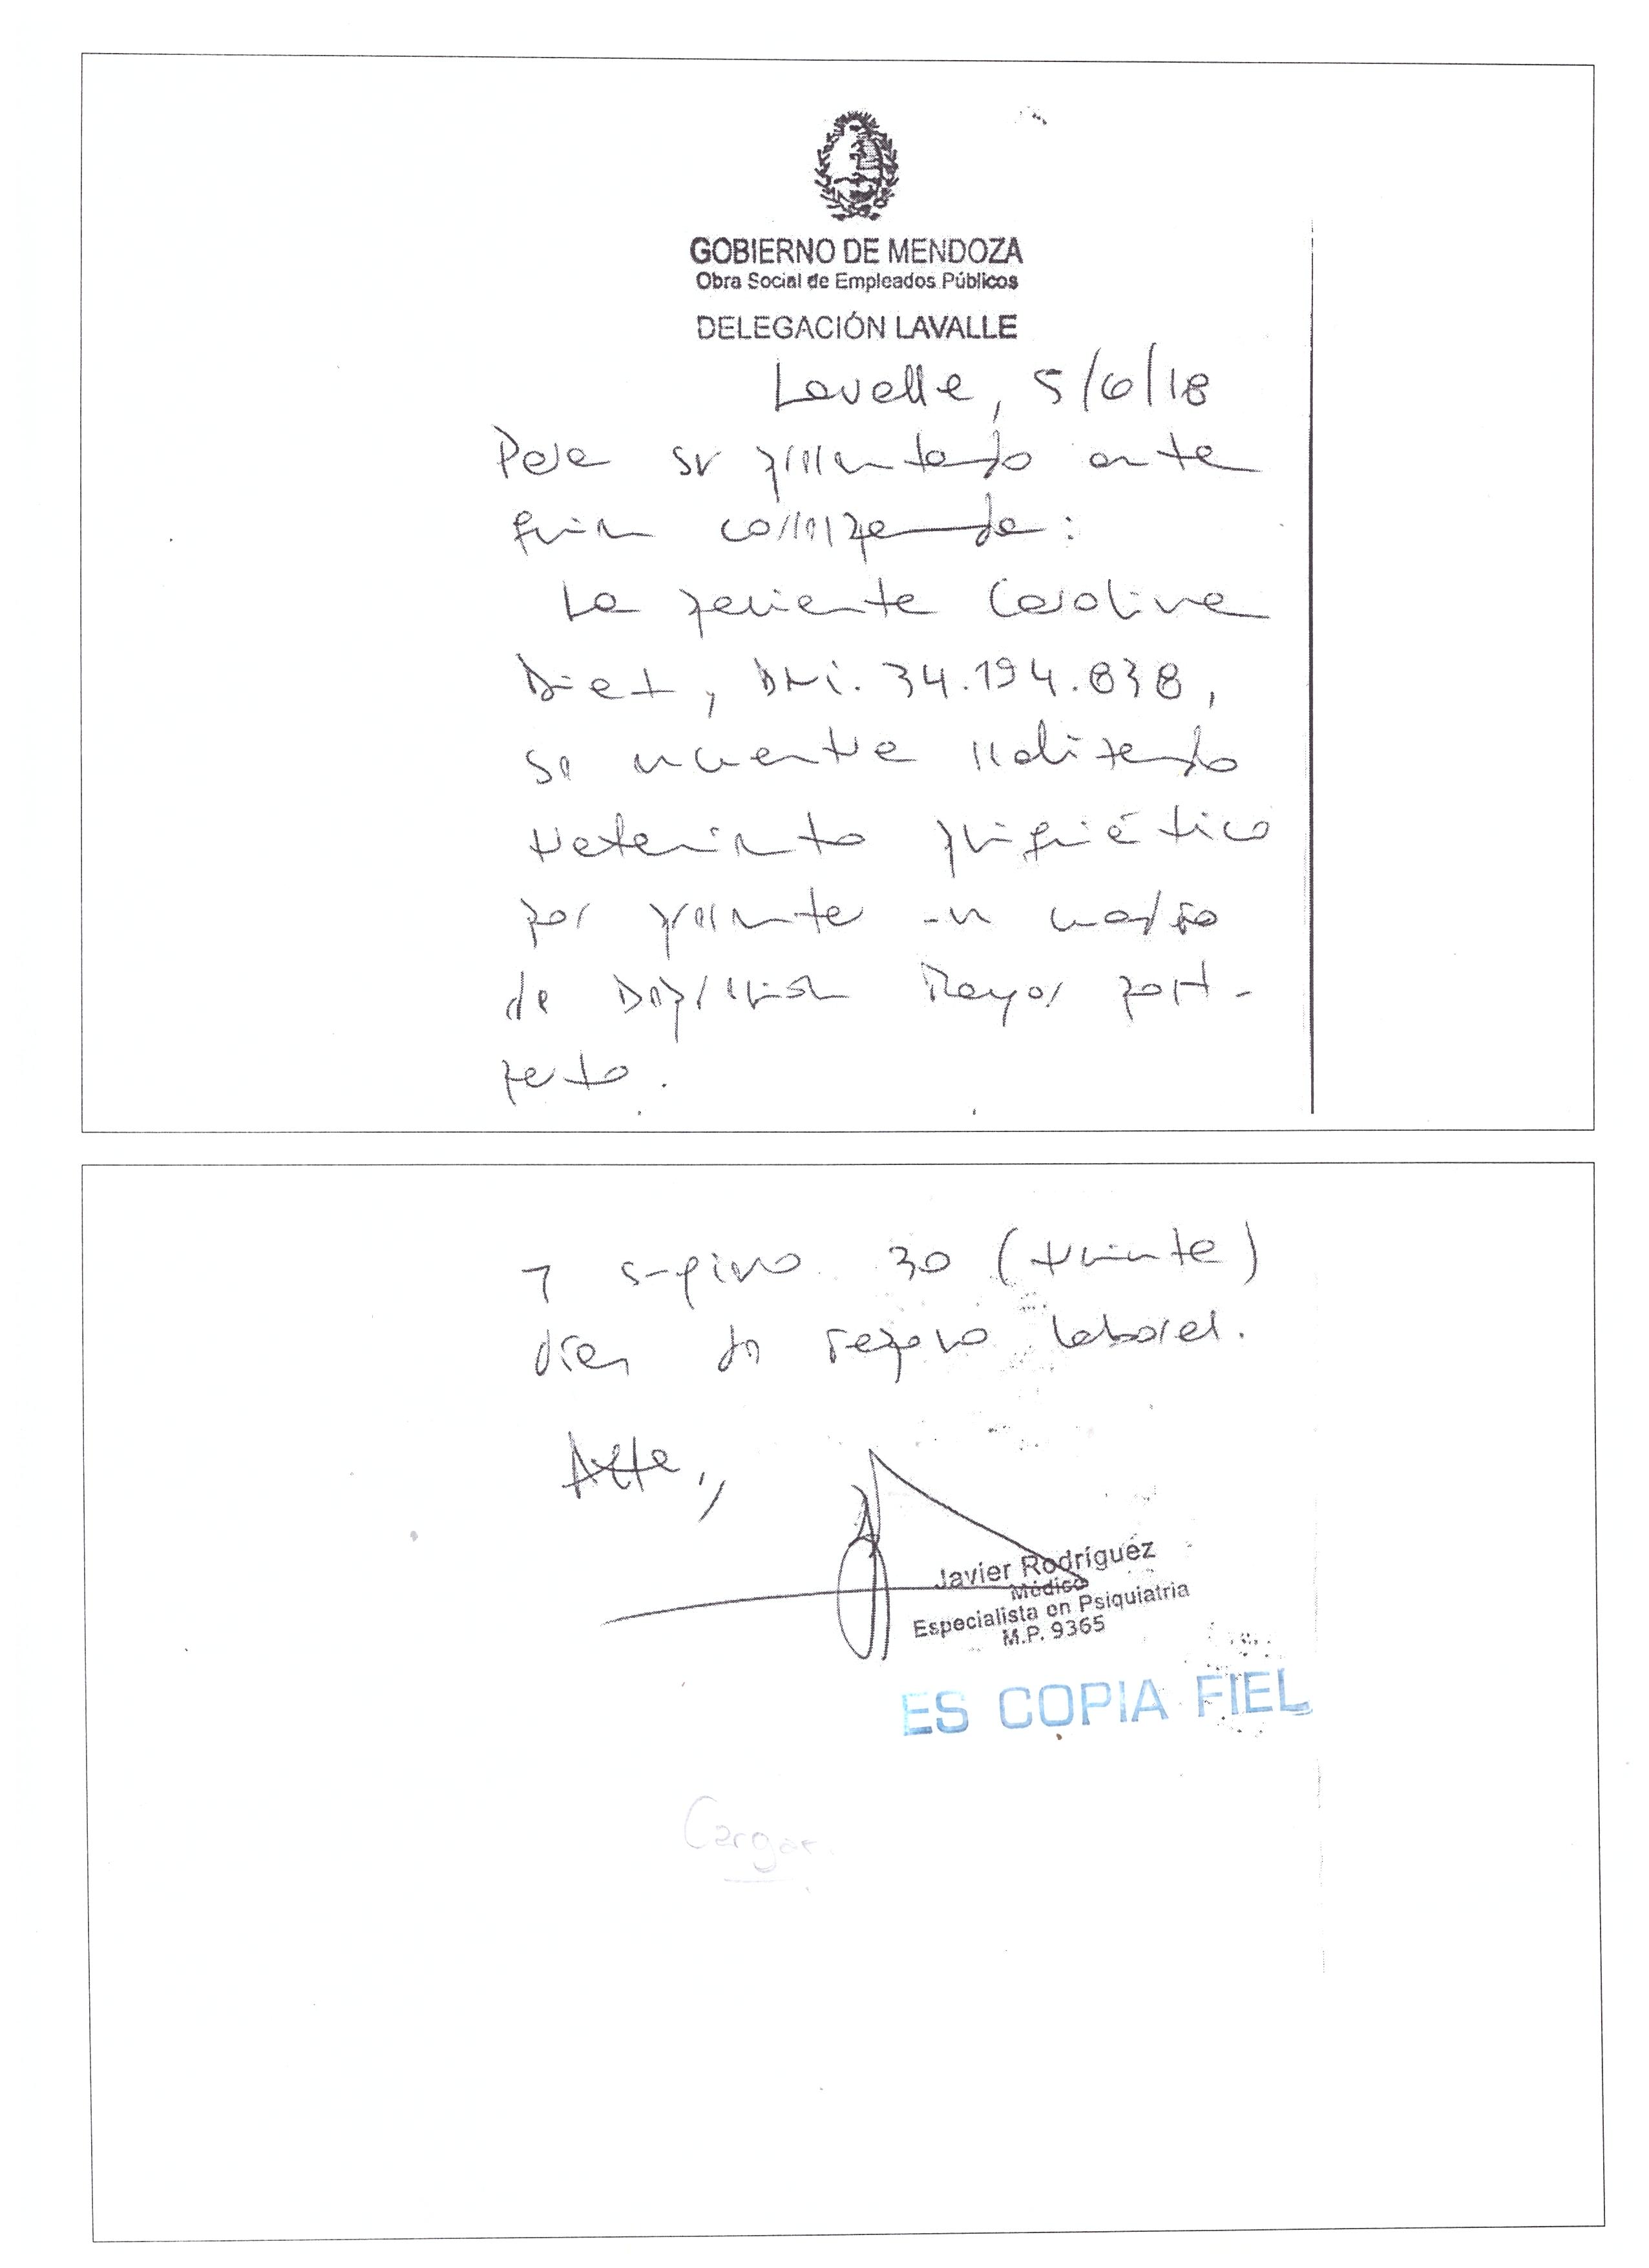 GOBIERNO DE MENDOZA
Obra Social de Empleados Públicos
DELEGACIÓN LAVALLE
Lavalle, 5/6/18
Para ser presentado ante
quien corresponda:
La paciente Carolina
Diet, DNI. 34.194.838,
se encuentra realizando
tratamiento psiquiático
por presentar un cuadro
de Depresión Mayor post-
parto.
y sugiero 30 (treinta)
días de reposo laboral.
Atte.,
Javier Rodríguez
Médico
Especialista en Psiquiatria
M.P. 9365
ES COPIA FIEL
Cargar.